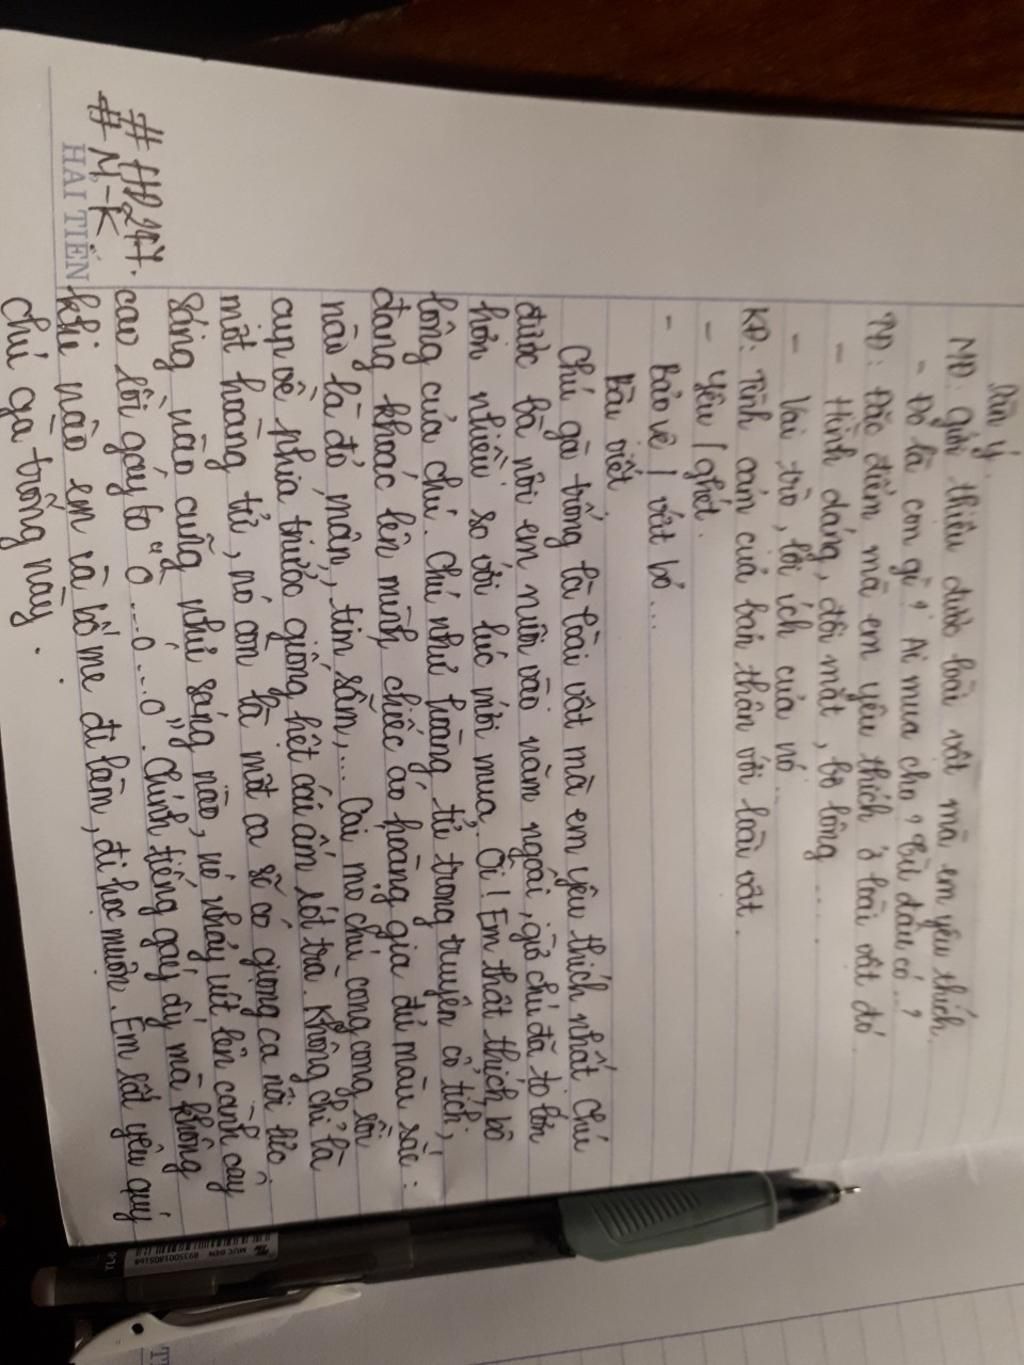 Dàn ý
MĐ: giới thiệu được loài vật mà em yêu thích.
- Đó là con gì? Ai mua cho? Từ đâu có...?
TĐ: Đặc điểm mà em yêu thích ở loài vật đó
- Hình dáng, đôi mắt, bộ lông....
- Vai trò, lợi ích của nó...
KĐ: Tình cảm của bản thân với loài vật.
- yêu / ghét.
- Bảo vệ / vứt bỏ...
Bài viết
Chú gà trống là loài vật mà em yêu thích nhất. Chú
được bà nội em nuôi vào năm ngoái, giờ chú đã to lớn
hơn nhiều so với lúc mới mua. Ôi! Em thật thích bộ
lông của chú. Chú như hoàng tử trong truyện cổ tích,
đang khoác lên mình chiếc áo hoàng gia đủ màu sắc:
nào là đỏ mận, tím sẫm,... Cái mỏ chú cong cong rồi
cụp về phía trước giống hệt cái ấm rót trà. Không chỉ là
một hoàng tử, nó còn là một ca sĩ có giọng ca nội lực.
Sáng nào cũng như sáng nào, nó nhảy vút lên cành cây
cao rồi gáy to "Ò...ó...o". Chính tiếng gáy ấy mà không
khi nào em và bố mẹ đi làm, đi học muộn. Em rất yêu quý
chú gà trống này.
#HĐ247.
#N-K
HẢI TIẾN
MỰC ĐEN
8935001805168